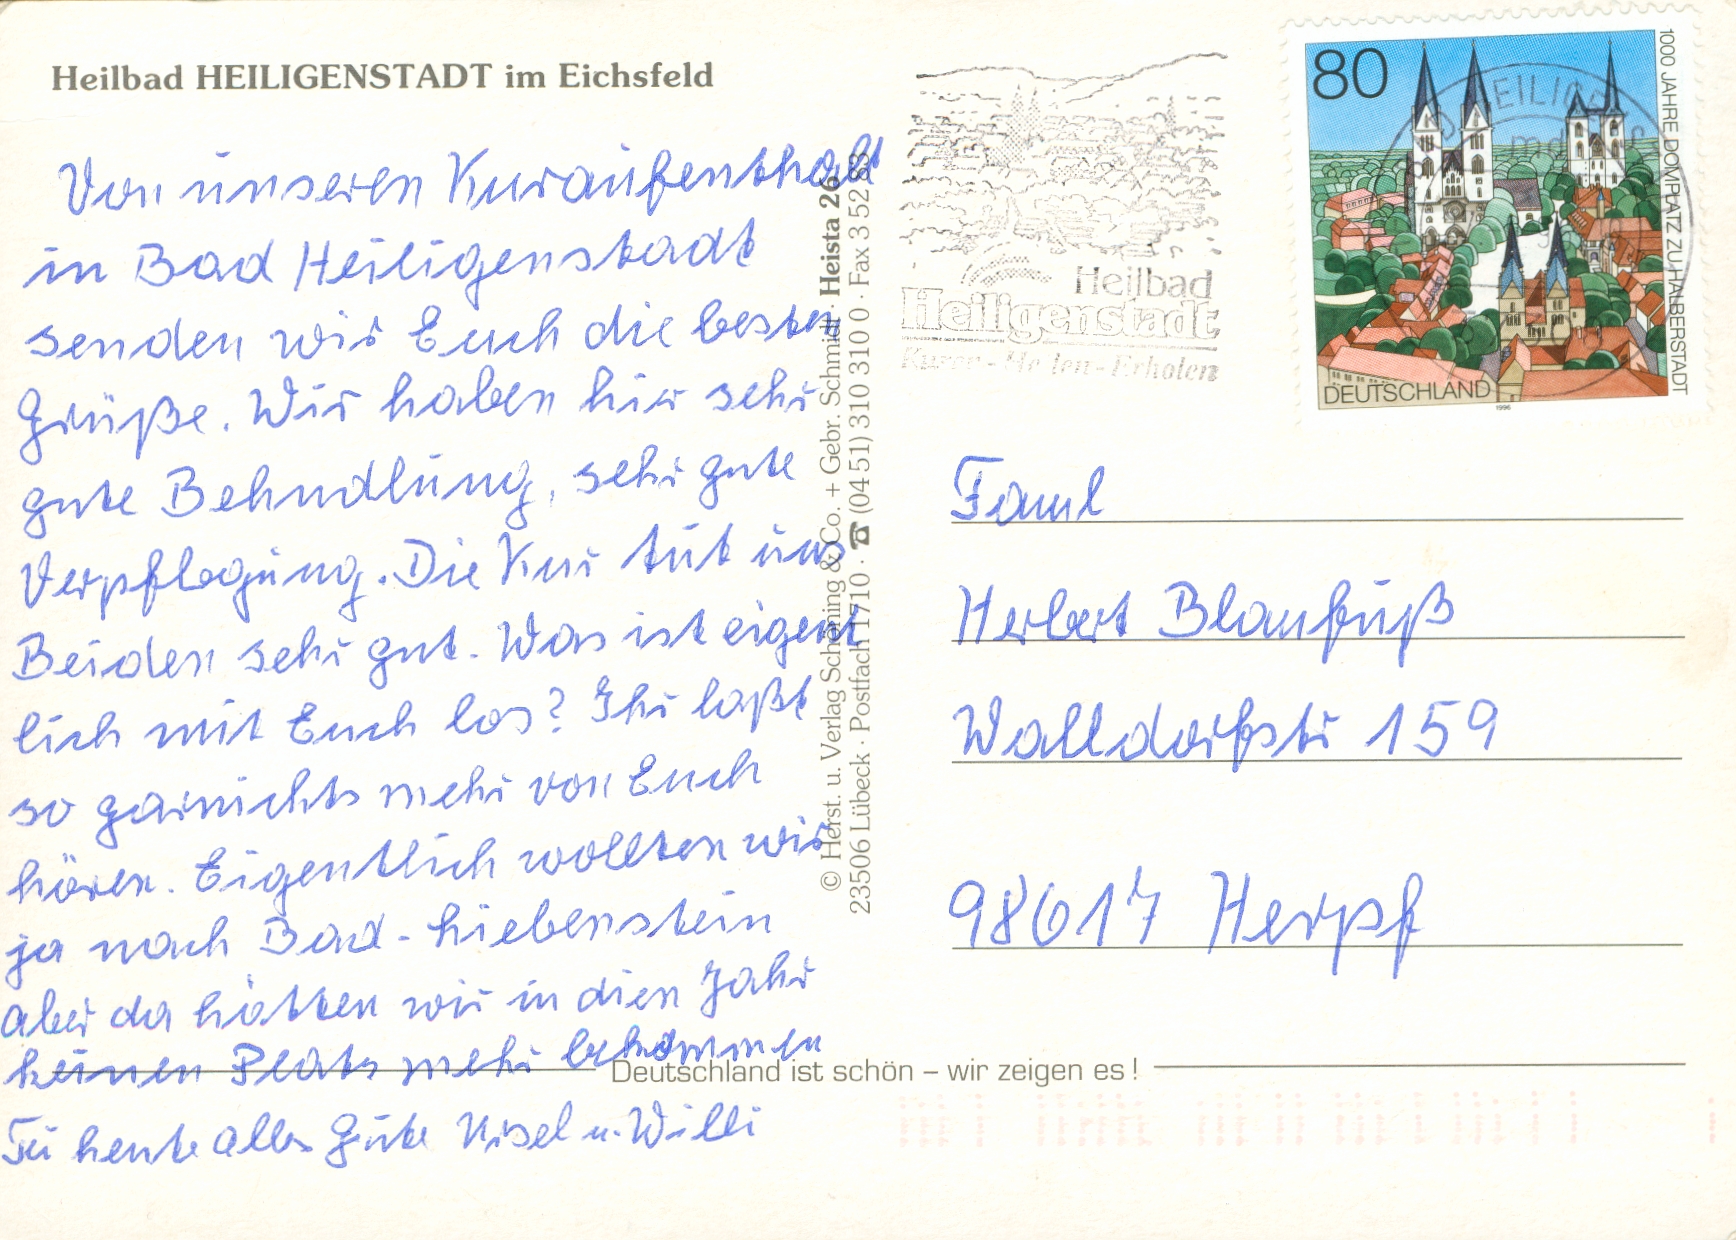 Heilbad HEILIGENSTADT im Eichsfeld
Von unseren Kuraufenthalt
in Bad Heiligenstadt
senden wir Euch die besten
Grüße. Wir haben hier sehr
gute Behndlung, sehr gute
Verpflegung. Die Kur tut uns
Beiden sehr gut. Was ist eigent
lich mit Euch los? Ihr laßt
so garnichts mehr von Euch
hören. Eigentlich wollten wir
ja nach Bad-Liebenstein
aber da hätten wir in dien Jahr
keinen Platz mehr bekommen
Für heute alles Gute u. Willi
© Herst. u. Verlag Schöning & Co. + Gebr. Schmidt · Heista 26
23506 Lübeck · Postfach 11710 · ☎ (04 51) 310 310 0 · Fax 3 52 83
Heilbad
Heiligenstadt
Kuren - Heilen - Erholen
80
1000 JAHRE DOMPLATZ ZU HALBERSTADT
DEUTSCHLAND
1996
HEILIG
Faml
Herbert Blaufuß
Walldorfstr 159
98617 Herpf
Deutschland ist schön – wir zeigen es!